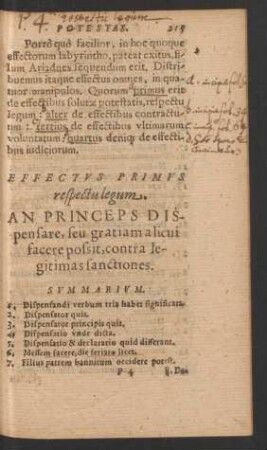 P. 4. respectu legum
POTESTAS. 215
Porrò quò facilior, in hoc quoque
effectorum labyrintho, pateat exitus, fi-
lum Ariadnes sequendum erit. Distri-
buemus itaque effectus omnes, in qua-
tuor manipulos. Quorum primus erit
de effectibus solutæ potestatis, respectu
legum: alter de effectibus contractu-
um: tertius de effectibus vltimarum
voluntatum: quartus deniq; de effecti-
bus iudiciorum.
EFFECTVS PRIMVS
respectu legum.
AN PRINCEPS DIS-
pensare, seu gratiam alicui
facere possit, contra le-
gitimas sanctiones.
SVMMARIVM.
1. Dispensandi verbum tria habet significata.
2. Dispensator quis.
3. Dispensator principis quis.
4. Dispensatio vnde dicta.
5. Dispensatio & declaratio quid differant.
6. Messem facere, die feriata licet.
7. Filius patrem bannitum occidere potest.
P 4 8. De-